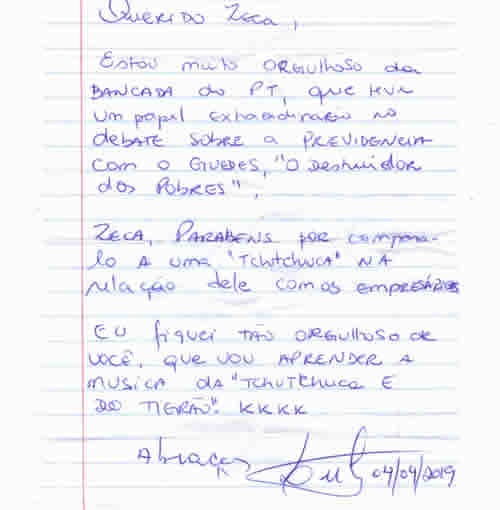 Querido Zeca,
Estou muito orgulhoso da
bancada do PT, que teve
um papel extraordinario no
debate sobre a previdencia
com o Guedes, "o destruidor
dos pobres".
Zeca, parabens por compara-
lo a uma "Tchutchuca" na
relação dele com os empresários
Eu fiquei tão orgulhoso de
você, que vou aprender a
musica da "Tchutchuca e
do Tigrão". kkkk
Abraços
Lula 04/04/2019